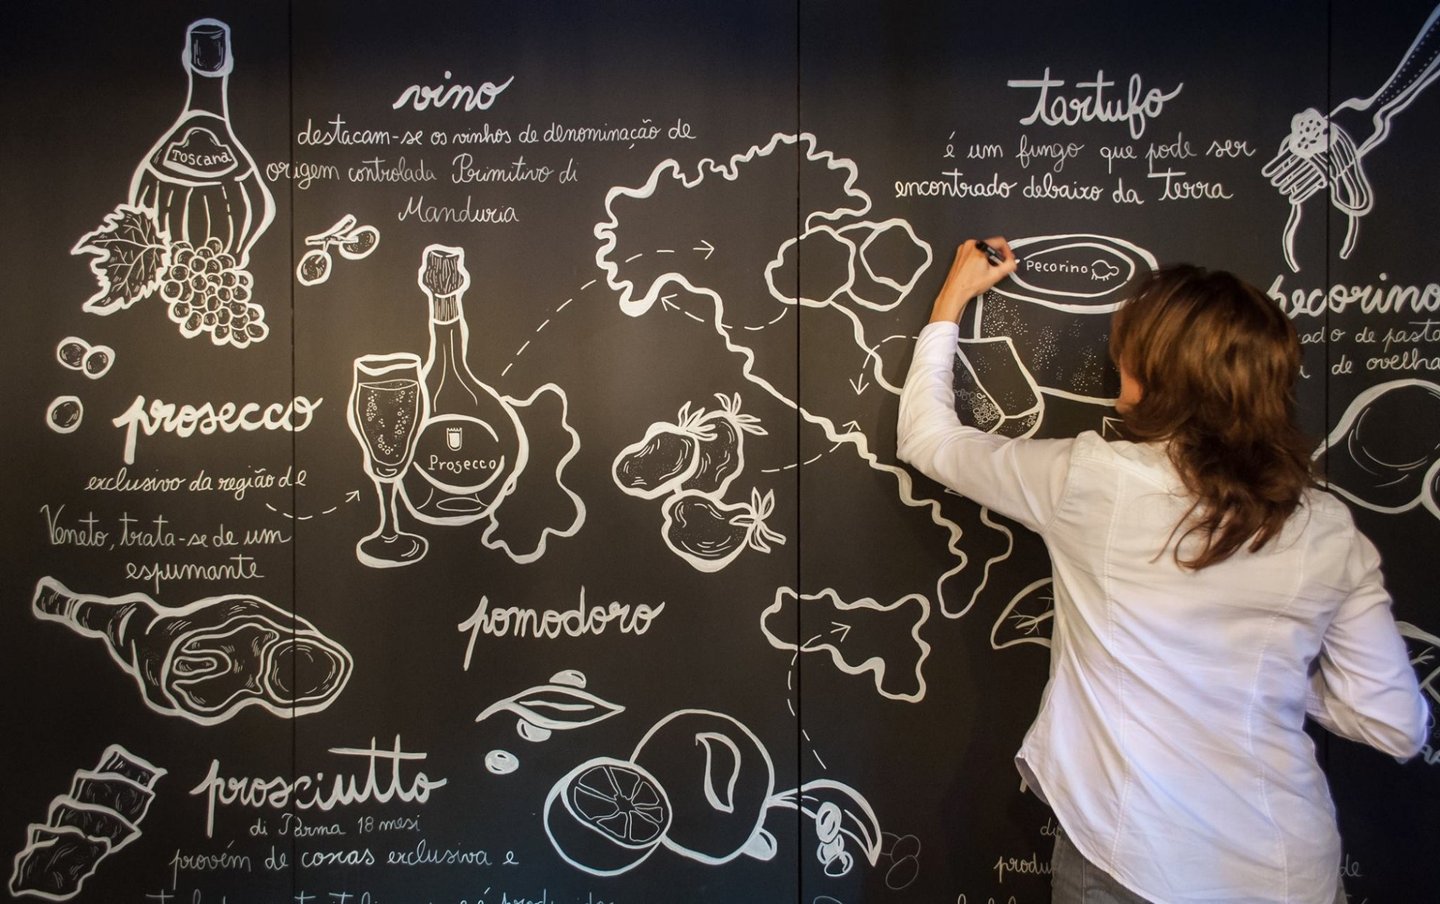 Toscana
vino
destacam-se os vinhos de denominação de
origem controlada Primitivo di
Manduria
tartufo
é um fungo que pode ser
encontrado debaixo da terra
Pecorino
pecorino
de pasta
de ovelha
prosecco
exclusivo da região de
Veneto, trata-se de um
espumante
Prosecco
pomodoro
prosciutto
di Parma 18 mesi
provém de coxas exclusiva e